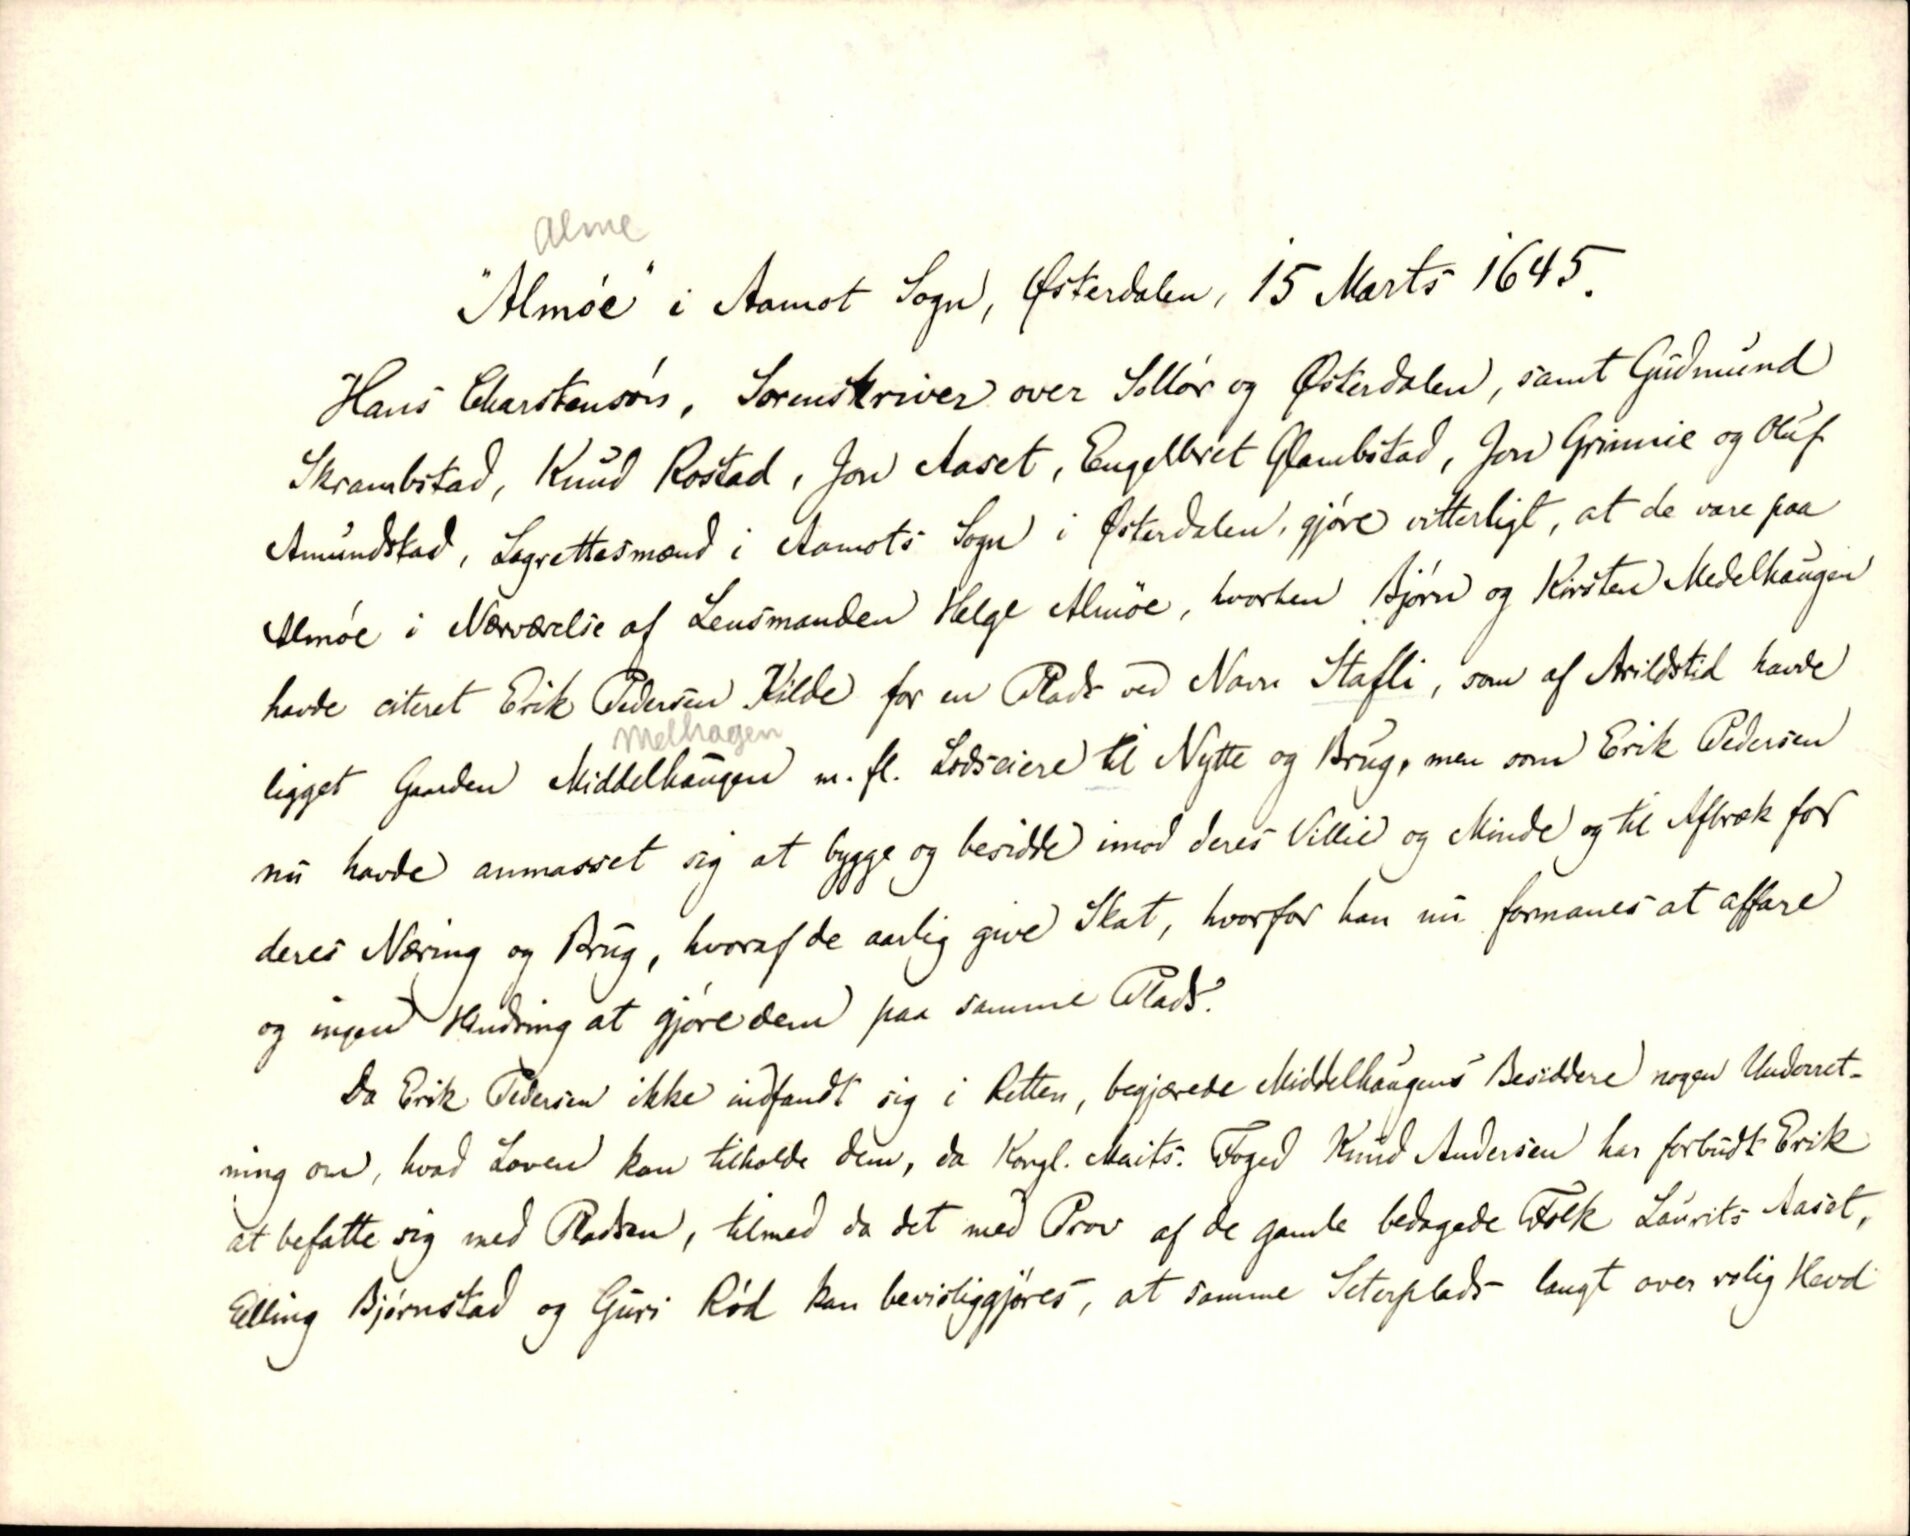 Alme
"Almöe" i Aamot Sogn, Østerdalen, 15 Marts 1645.
Hans Charstensøn, Sorenskriver over Sollør og Østerdalen, samt Gudmund
Skrambstad, Knud Rostad, Jon Aaset, Engelbret Glambstad, Jon Grimnie og Oluf
Amundstad, Lagrettesmænd i Aamots Sogn i Østerdalen, gjøre vitterligt, at de vare paa
Almøe i Nærværelse af Lensmanden Helge Almöe, hvorhen Bjørn og Kirsten Medelhaugen
havde citeret Erik Pedersen Kilde for en Plads ved Navn Stafli, som af Arildstid havde
Melhagen
ligget Gaarden Middelhaugen m. fl. Lodseiere til Nytte og Brug, men som Erik Pedersen
nu havde anmasset sig at bygge og besidde imod deres Villie og Minde og til Afbræk for
deres Næring og Brug, hvoraf de aarlig give Skat, hvorfor han nu formanes at affare
og ingen Hindring at gjøre dem paa samme Plads.
Da Erik Pedersen ikke indfandt sig i Retten, begjærede Middelhaugens Besiddere nogen Underret-
ning om, hvad Loven kan tilholde dem, da Kongl. Maits. Foged Knud Andersen har forbudt Erik
at befatte sig med Pladsen, tilmed da det med Prov af de gamle bedagede Folk Laurits Aaset,
Elling Bjørnstad og Guri Rød kan bevisliggjøres, at samme Seterplads langt over rolig Hevd